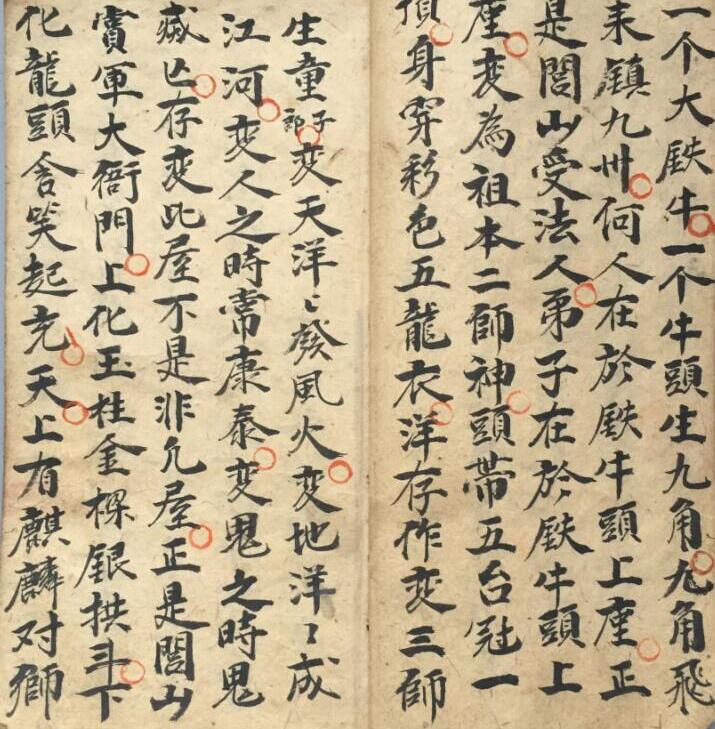 一个大鉄牛一个牛頭生九角九角飛
来鎮九州何人在於鉄牛頭上座正
是閭山受法人弟子在於鉄牛頭上
座变為祖本二師神頭帶五台冠一
頂身穿彩色五龍衣洋存作变三師
生童子郎变天洋〻發風火变地洋〻成
江河变人之時常康泰变鬼之時鬼
藏亡存变此屋不是非凢屋正是閭山
賞軍大衙門上化玉柱金樑銀拱斗下
化龍頭含笑起充天上有麒麟对獅